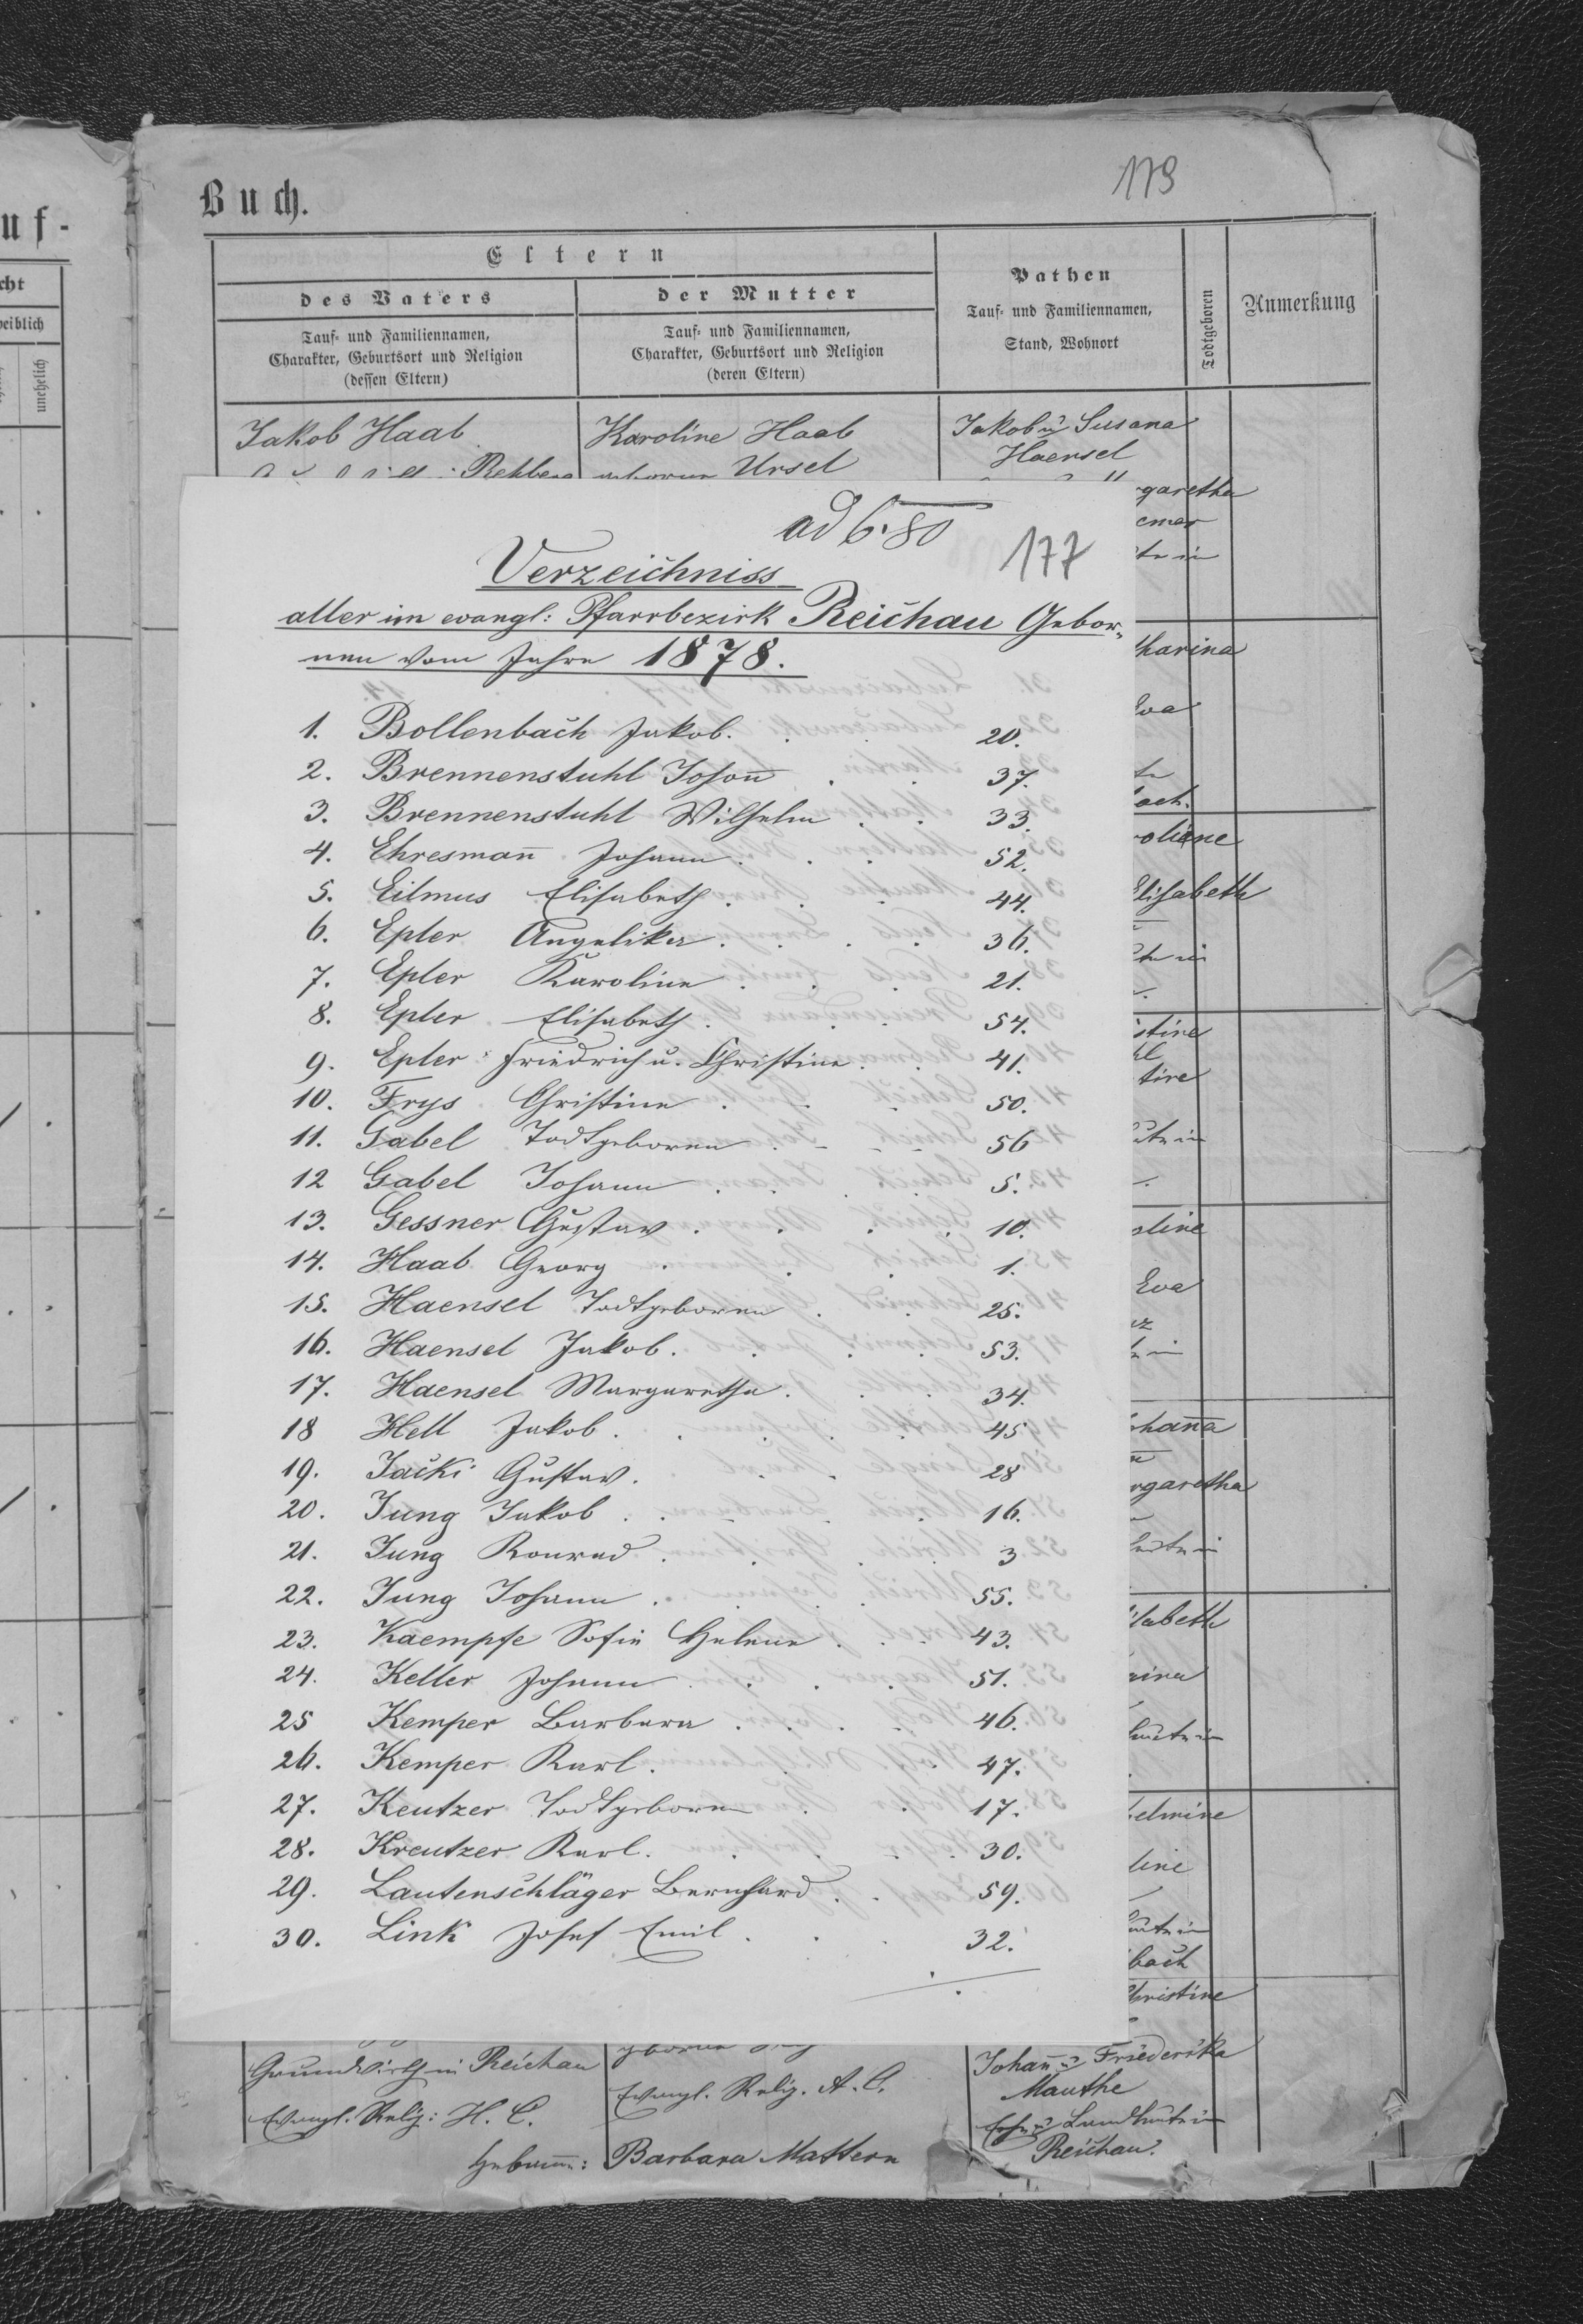 179
Buch.
uf-
cht
weiblich
unehelich
Eltern
des Vaters
der Mutter
Pathen
Todtgeboren
Anmerkung
Tauf- und Familiennamen,
Charakter, Geburtsort und Religion
(dessen Eltern)
Tauf- und Familiennamen,
Charakter, Geburtsort und Religion
(deren Eltern)
Tauf- und Familiennamen,
Stand, Wohnort
Jakob Haab
Karoline Haab
Jakob u Susana
Haensel
Rehberg
geborne Ursel
ad 6·80
177
Verzeichniss
aller im evangl: Pfarrbezirk Reichau Gebor-
nen vom Jahre 1878.
1. Bollenbach Jakob. 20.
2. Brennenstuhl Johañ 37.
3. Brennenstuhl Wilhelm 33.
4. Ehresmañ Johann 52.
5. Eilmus Elisabeth 44.
6. Epler Angelika 36.
7. Epler Karoline 21.
8. Epler Elisabeth 54.
9. Epler Friedrich u. Christine 41.
10. Frys Christine 50.
11. Gabel Todtgeboren 56
12 Gabel Johann 5.
13. Gessner Gustav 10.
14. Haab Georg 1.
15. Haensel Todtgeboren 25.
16. Haensel Jakob. 53.
17. Haensel Margaretha 34.
18 Hell Jakob 45
19. Jacki Gustav. 28
20. Jung Jakob 16.
21. Jung Konrad 3
22. Jung Johann 55.
23. Kaempfe Sofie Helene 43.
24. Keller Johann 51.
25 Kemper Barbara 46.
26. Kemper Karl. 47.
27. Keutzer Todtgeboren 17.
28. Kreutzer Karl. 30.
29. Lautenschläger Bernhard 59.
30. Link Josef Emil 32.
garetha
tharina
Eva
oline
Elisabeth
stine
Eva
ohaña
rgaretha
isabeth
elmine
line
bach
Christine
Grundwirth in Reichau
Evangl. Relig: H. C.
Evangl. Relig. A. C.
Johañ u Friederika
Mauthe
Reichau.
Hebamme: Barbara Mattern